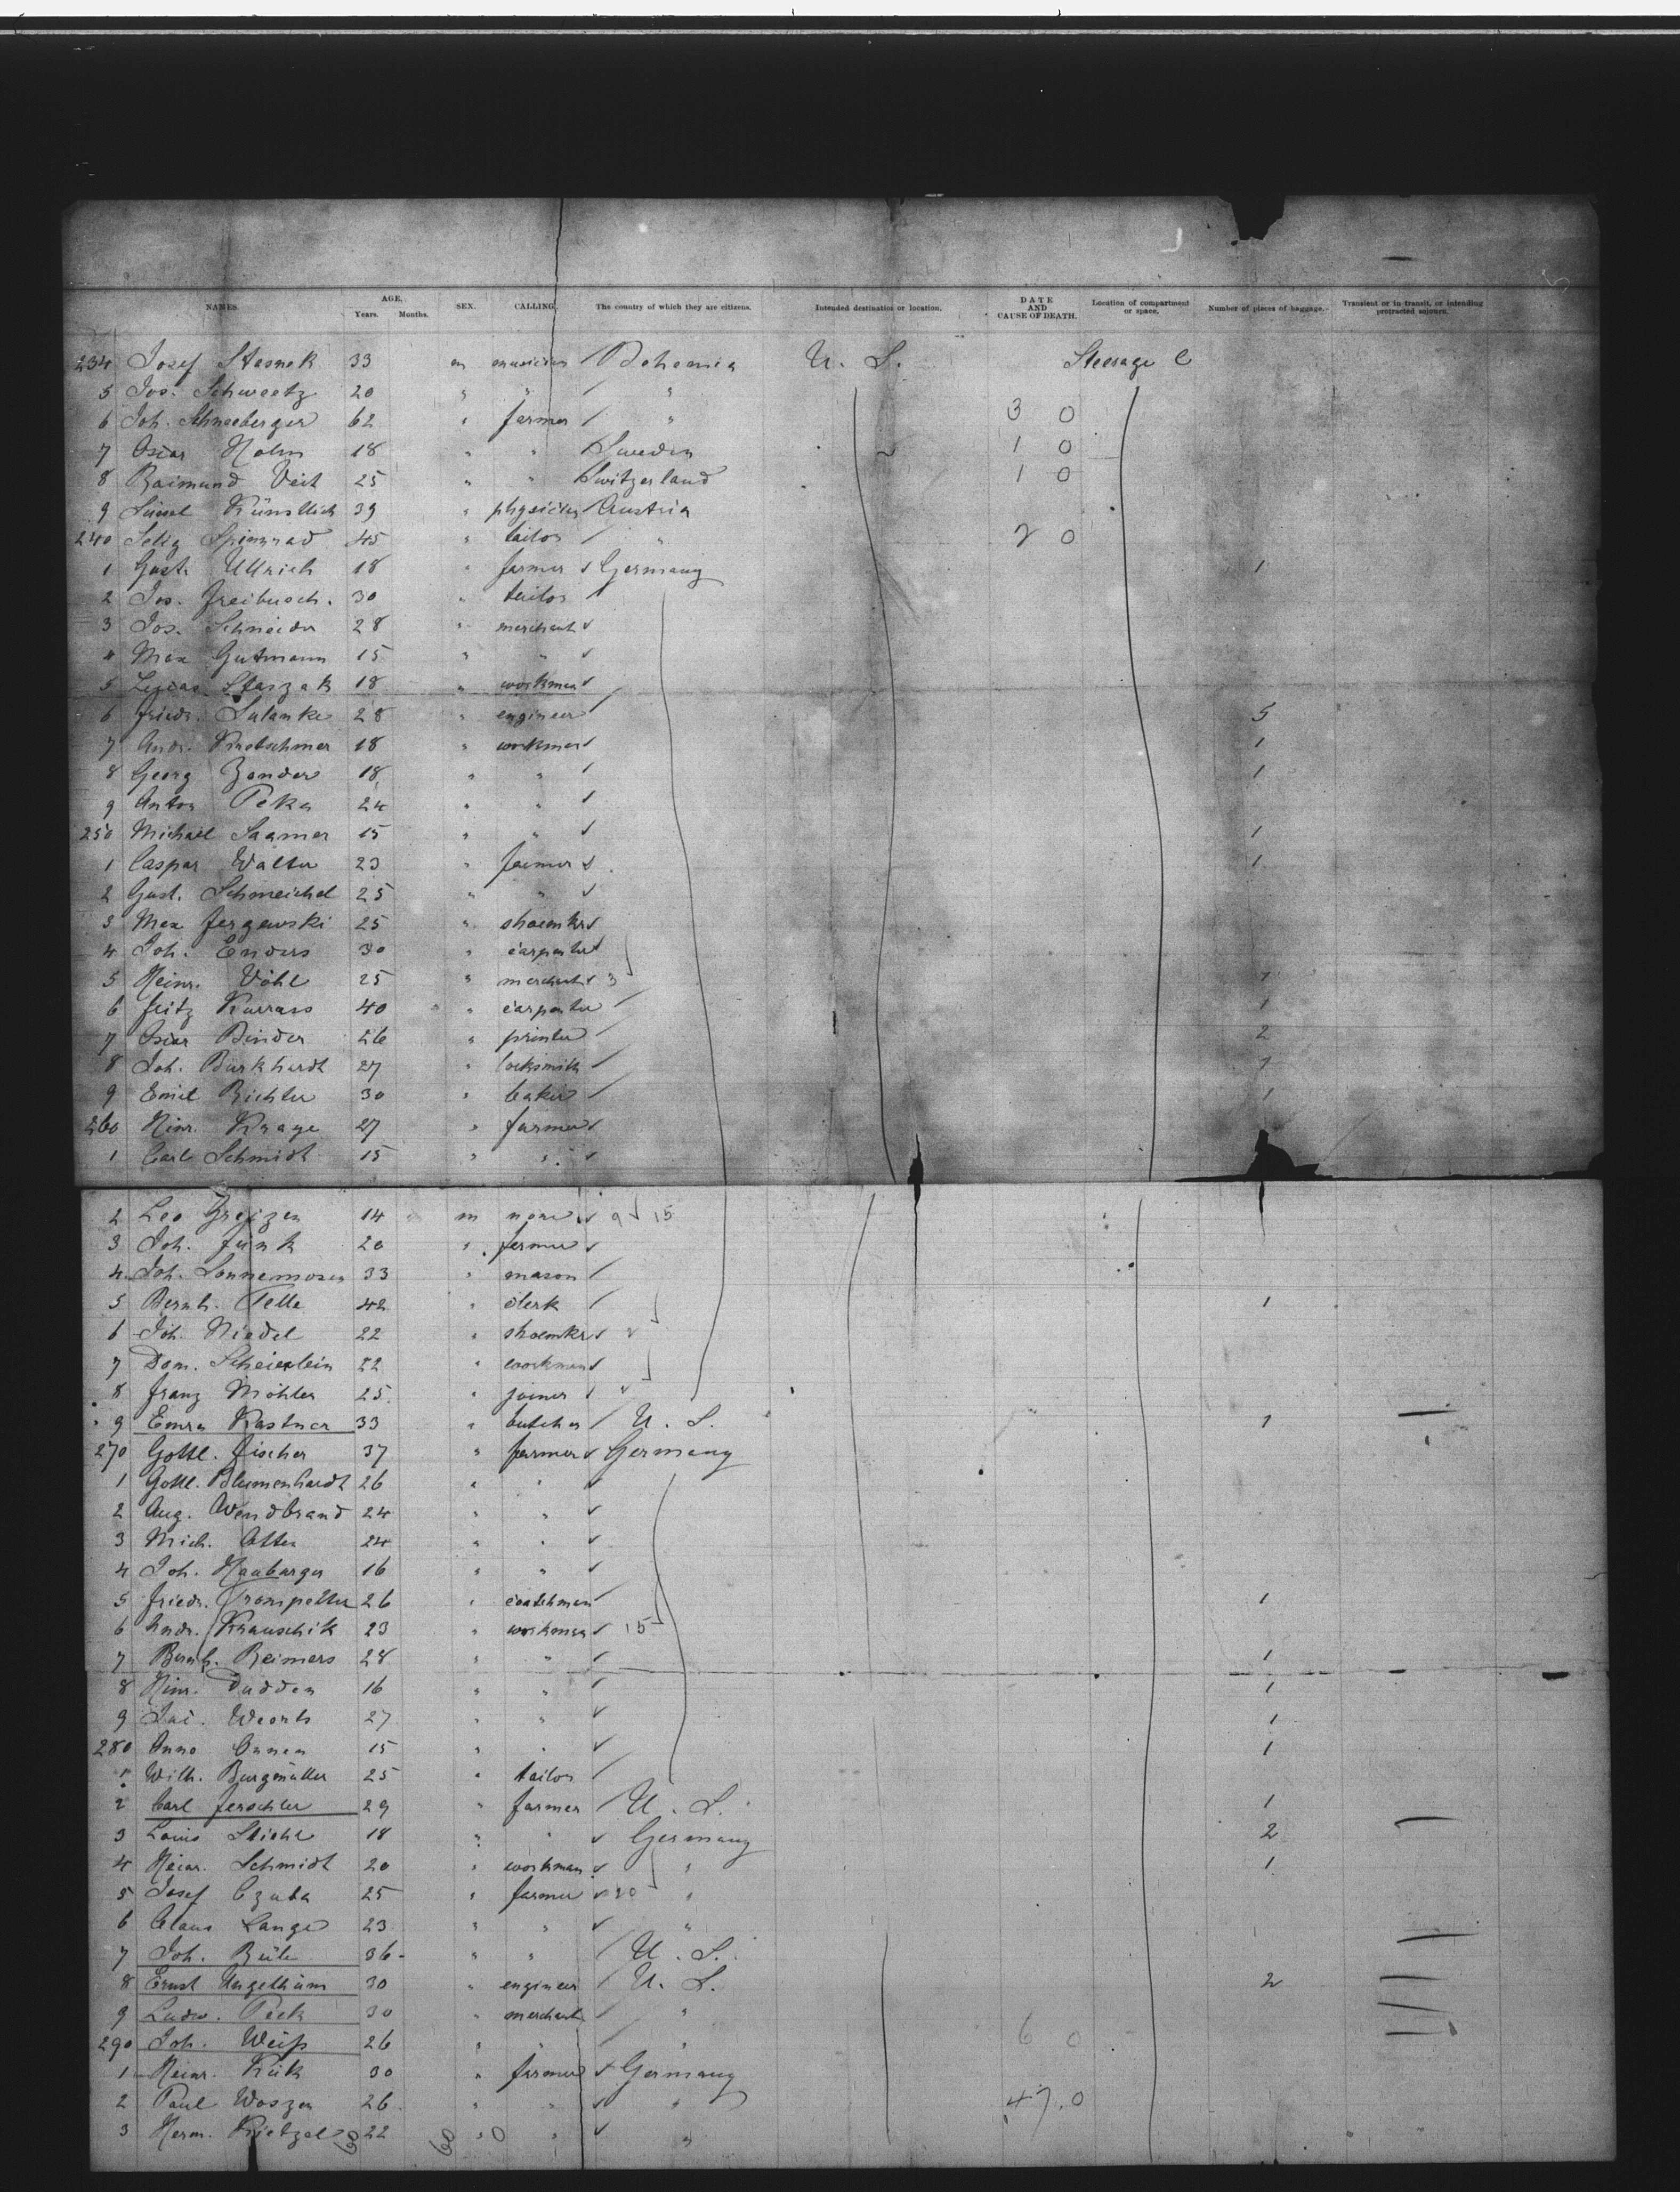 NAMES. AGE, Years. Months. SEX. CALLING. The country of which they are citizens. Intended destination or location. DATE AND CAUSE OF DEATH. Location of compartment or space. Number of pieces of baggage. Transient or in transit, or intending protracted sojourn.
234 Josef Stasnek 33 m musician / Bohemia U. S. Steerage C
5 Jos. Schweetz 20 " " / "
6 Joh. Schneeberger 62 " farmer / " 3 0
7 Oscar Holm 18 " " / Sweden 1 0
8 Raimund Veit 25 " " Switzerland 1 0
9 Künstlich 39 " physician / Austria
240 Selig Spinnrad 45 " tailor / " 2 0
1 Gust. Ullrich 18 " farmer ✓ Germany 1
2 Jos. Freibusch. 30 " tailor /
3 Jos. Schneider 28 " merchant ✓
4 Max Gutmann 15 " " ✓
5 Staszak 18 " workman ✓
6 Friedr. Salanke 28 " engineer / 5
7 Andr. Kretschmer 18 " workman ✓ 1
8 Georg Zander 18 " " / 1
9 Anton Peka 24 " " /
250 Michael Saamer 15 " " ✓ 1
1 Caspar Walter 23 " farmer ✓ 1
2 Gust. Schmeichel 25 " " ✓
3 Max Jergewski 25 " shoemkr ✓
4 Joh. Enders 30 " carpenter ✓
5 Heinr. Vöhl 25 " merchant ✓ 3 1
6 Fritz Kurrass 40 " carpenter / 1
7 Oscar Binder 26 " printer / 2
8 Joh. Burkhardt 27 " locksmith / 1
9 Emil Richter 30 " baker / 1
260 Hinr. Krage 27 " farmer ✓
1 Carl Schmidt 15 " " ✓
2 Leo 14 m none ✓ 9 ✓ 15
3 Joh. Funk 20 " farmer ✓
4 Joh. Sonnemoser 33 " mason /
5 Bernh. Telle 42 " clerk / 1
6 Joh. Niedel 22 " shoemkr ✓
7 Dom. Scheierlein 22 " workman ✓
8 Franz Möhler 25 " joiner /
9 Kastner 33 " butcher / U. S. 1 —
270 Gottl. Fischer 37 " farmer ✓ Germany
1 Gottl. Blumenhardt 26 " " ✓
2 Aug. Wendbrand 24 " " ✓
3 Mich. Otten 24 " " ✓
4 Joh. Hauberger 16 " " ✓
5 Friedr. Trompetter 26 " coachman / 1
6 Andr. Krauschik 23 " workman ✓ 15
7 Bernh. Reimers 28 " " / 1
8 Hinr. Dudden 16 " " / 1
9 Weerts 27 " " ✓ 1
280 Anno Onnen 15 " " ✓ 1
1 Wilh. Burgmüller 25 " tailor /
2 Carl Jerochler 29 " farmer / U. S. 1 —
3 Louis Stiehl 18 " " ✓ Germany 2
4 Heinr. Schmidt 20 " workman ✓ " 1
5 Josef Czuba 25 " farmer ✓ 20 "
6 Claus Lange 23 " " ✓ "
7 Joh. Bük 36 " " / U. S. —
8 Ernst Ungethüm 30 " engineer / U. S. 2 —
9 Ludw. Peck 30 " merchant / " —
290 Joh. Weiß 26 " " / " 6 0 —
1 Heinr. Kük 30 " farmer ✓ Germany
2 Paul Woszen 26 " " ✓ " 47.0
3 Herm. Kietzel 22 " " ✓ "
60 60 0